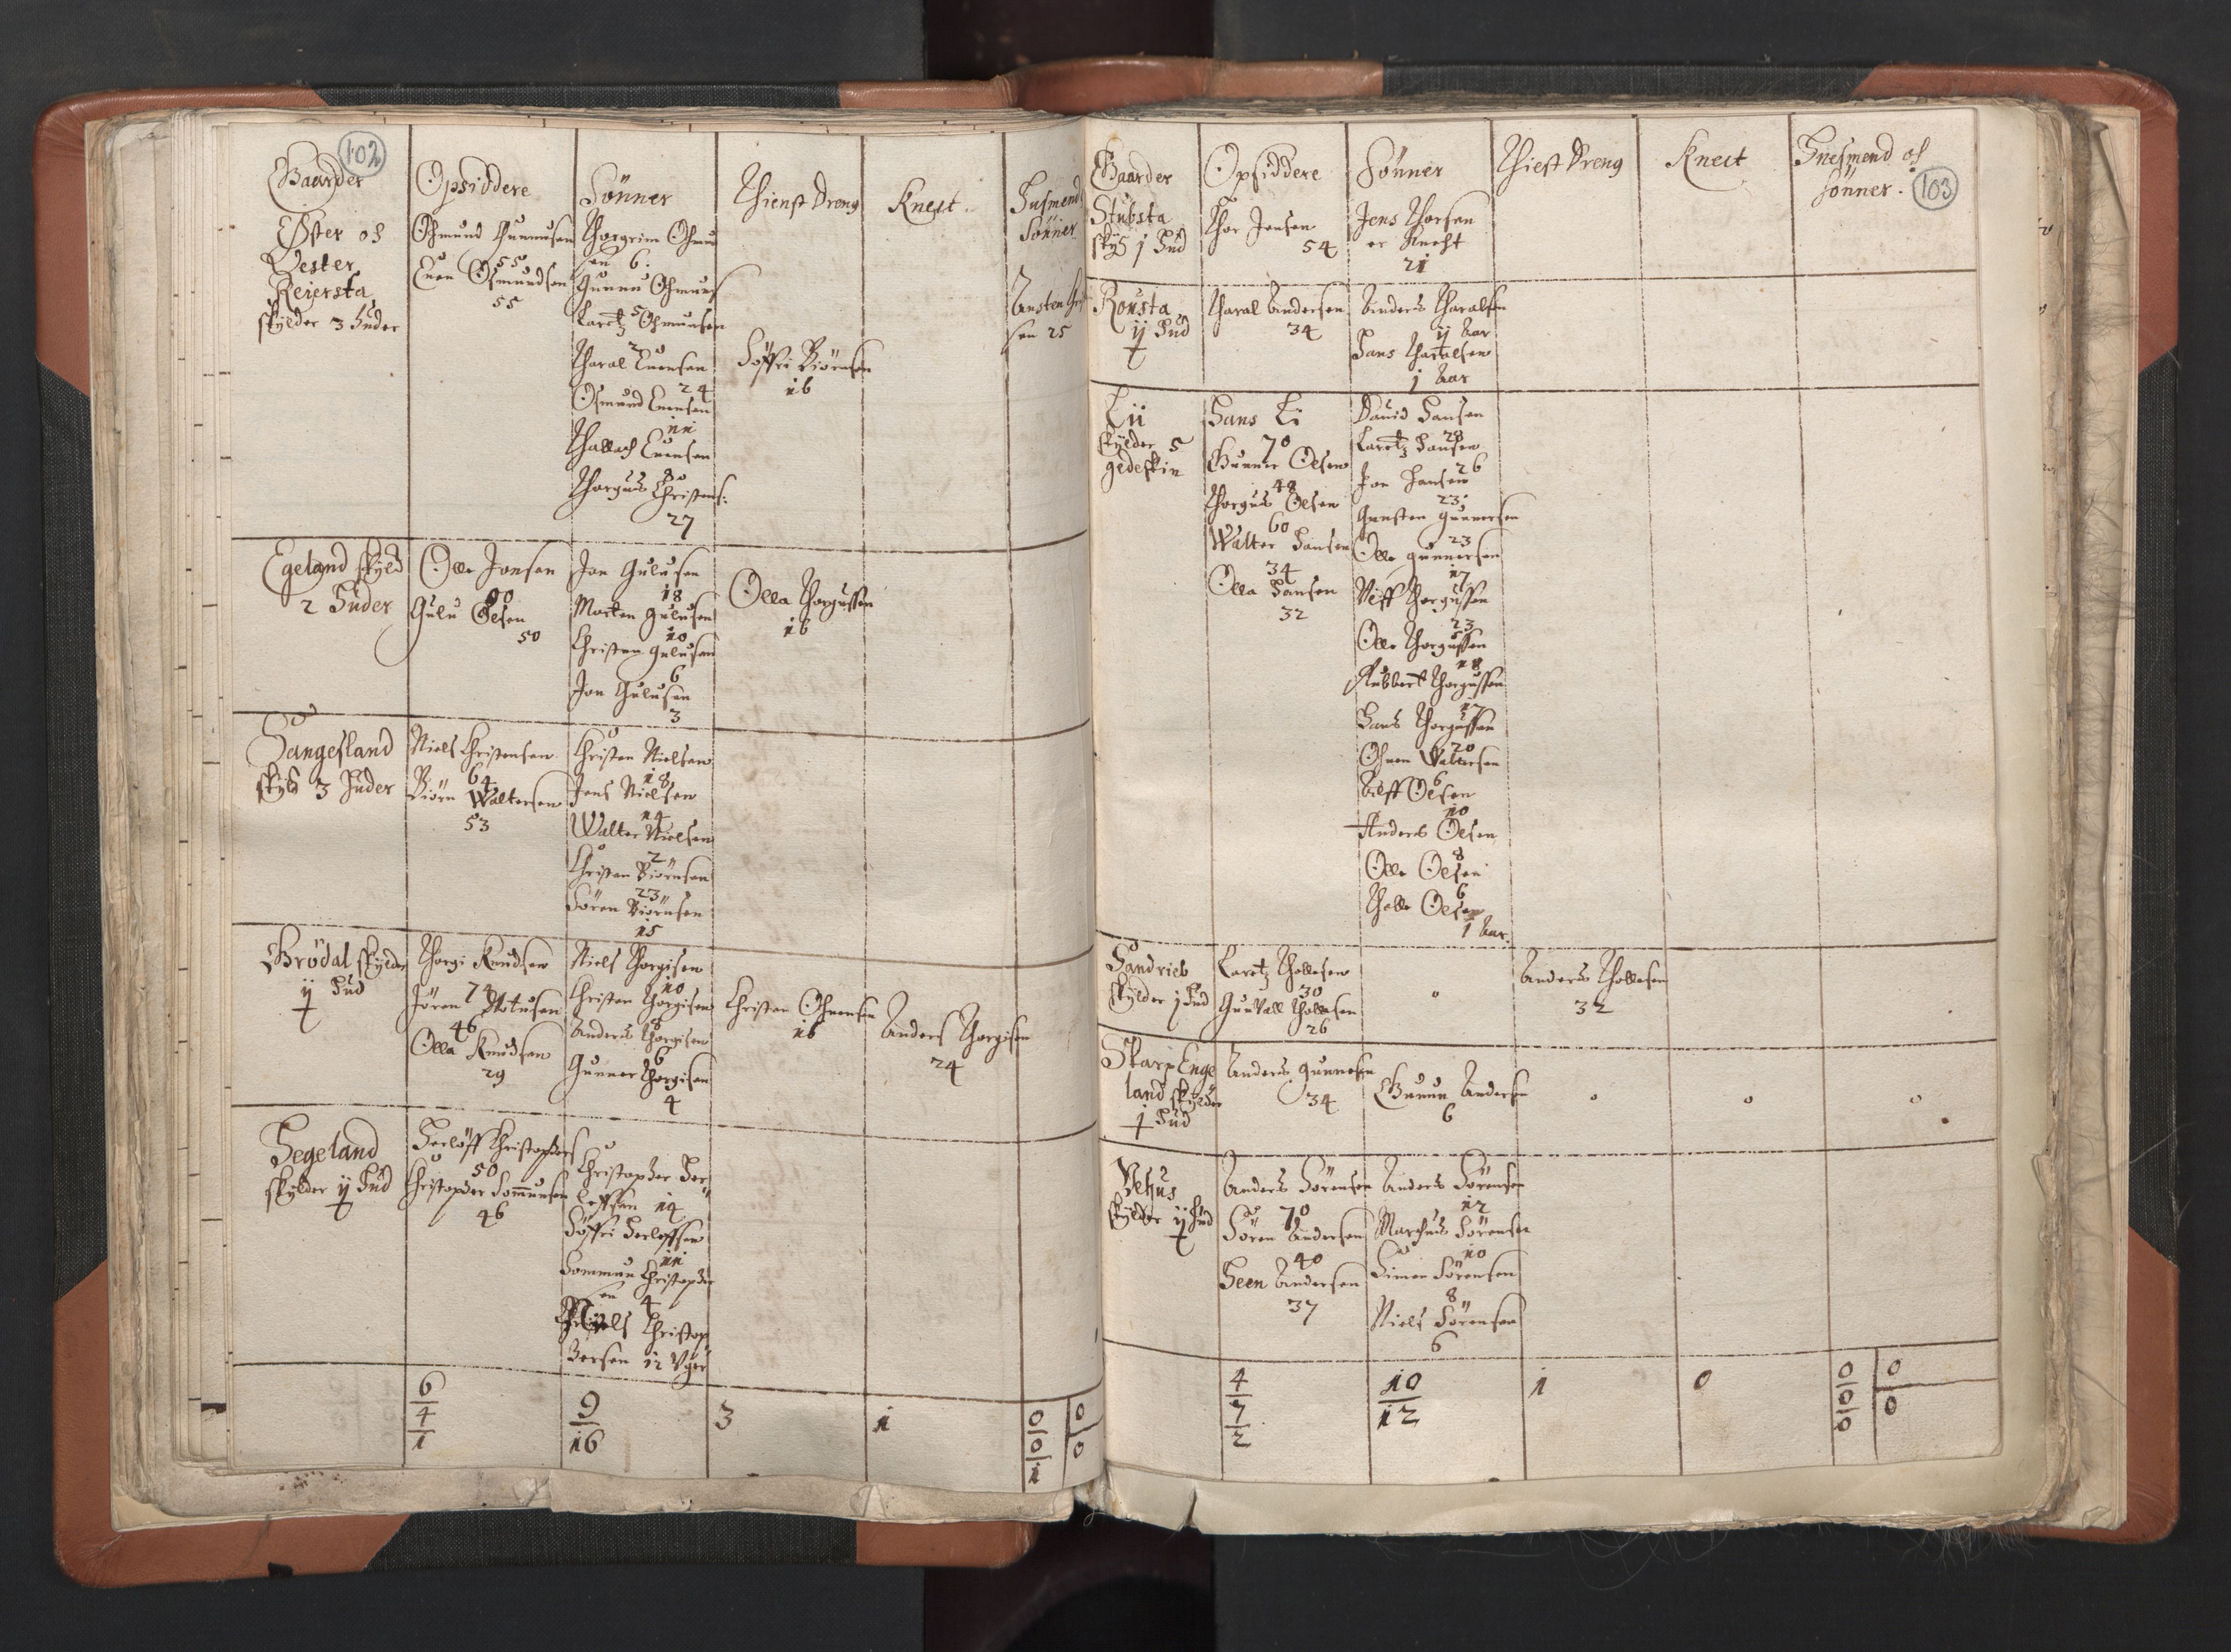 102
Gaarder
Opsiddere
Sönner
Thienst Dreng
Knect.
Husmend
Sönner
Öster og
Vester
Reiersta
skylder 3 Huder
Ohmund Gunnusen
55
Euen Osmundsen
55
Thorgrim Ohmun
sen 6.
Gunnu Ohmuns
5
Laretz Ohmunsen
2
Tharal Euensen
24
Osmund Euensen
11
Thollach Euensen
8
Thorgus Christens:
27
Söffri Biörnsen
16
sen 25
Egeland skyld
2 Huder
Olle Jonsen
90
Gulu Olsen
50
Jon Gulusen
18
Morten Gulusen
10
Christen Gulusen
6
Jon Gulusen
3
Olla Thorgussen
16
Hangesland
skyld 3 Huder
Niels Christensen
64
Biörn Waltersen
53
Christen Nielsen
18
Jens Nielsen
14
Walter Nielsen
2
Christen Biörnsen
23
Sören Biörnsen
15
Grödal skylder
ij Hud
Thorgi Knudsen
74
Jören
46
Olla Knudsen
29
Niels Thorgisen
10
Christen Thorgisen
8
Anders Thorgisen
6
Gunner Thorgisen
4
Christen Ohuensen
16
Anders Thorgisen
24
Hegeland
skylder ij Hud
Herlöff Christophers
50
Christopher Sommunsen
46
Christopher Her
leffsen 14
Söffri Herloffsen
11
Sommun Christopher
sen 4
Niels Christop
hersen 12 Uger
6
4
1
9
16
3
1
0
0
1
0
0
103
Gaarder
Opsiddere
Sönner
Thiest Dreng
Knect
Husmend og
sönner.
Stubsta
skyld j Hud
Thor Jensen
54
Jens Thorsen
er Knecht
21
Rousta
ij Hud
Tharal Andersen
34
Anders Tharalsen
ij Aar
Hans Tharalsen
j Aar
Lii
skylder 5
gedeskin
Hans Li
70
Gunner Olsen
48
Thorgus Olsen
60
Walter Hansen
34
Olla Hansen
32
Dauid Hansen
28
Laretz Hansen
26
Jon Hansen
23
Aansten Gunnersen
23
Olle Gunnersen
17
Ulff Thorgussen
23
Olle Thorgussen
18
Rubbert Thorgussen
17
Hans Thorgussen
20
Ohuen Waltersen
6
Alff Olsen
10
Anders Olsen
8
Olle Olsen
6
Tholle Olsen
1 Aar.
Sandrieb
skylder j Hud
Laretz Thollesen
30
Gunvall Thollesen
26
0
Anders Thollesen
32
Skarp Enge
land skylder
j Hud
Anders Gunnesen
34
Gunnu Andersen
6
0
0
0
Vehus
skylder ij Hud
Anders Sörensen
70
Sören Andersen
40
Steen Andersen
37
Anders Sörensen
12
Marchus Sörensen
10
Simon Sörensen
8
Niels Sörensen
6
4
7
2
10
12
1
0
0
0
0
0
0